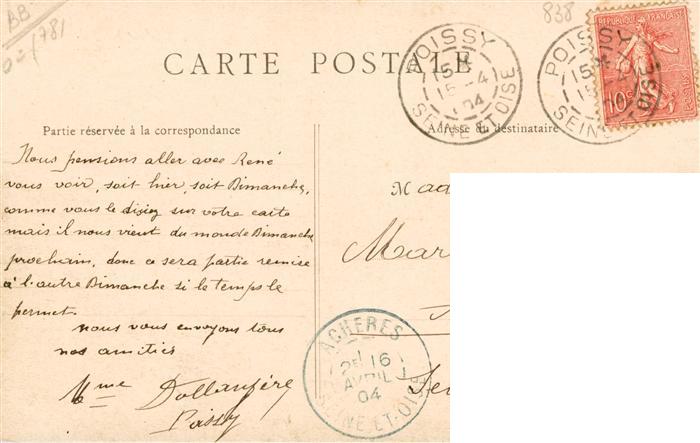 BB
838
CARTE POSTALE
POISSY
15 *
15 -4
04
SEINE ET OISE
POISSY
15 *
SEINE
OISE
REPUBLIQUE FRANÇAISE
10c
POSTES
Partie réservée à la correspondance
Adresse du destinataire
Nous pensions aller avec René
vous voir, soit hier, soit Dimanche,
comme vous le disiez sur votre carte
mais il nous vient du monde Dimanche
prochain, donc ce sera partie remise
à l'autre Dimanche si le temps le
permet.
nous vous envoyons tous
nos amitiés
Mme
Poissy
Mad
Mar
ACHERES
16
AVRIL
04
SEINE-ET-OISE